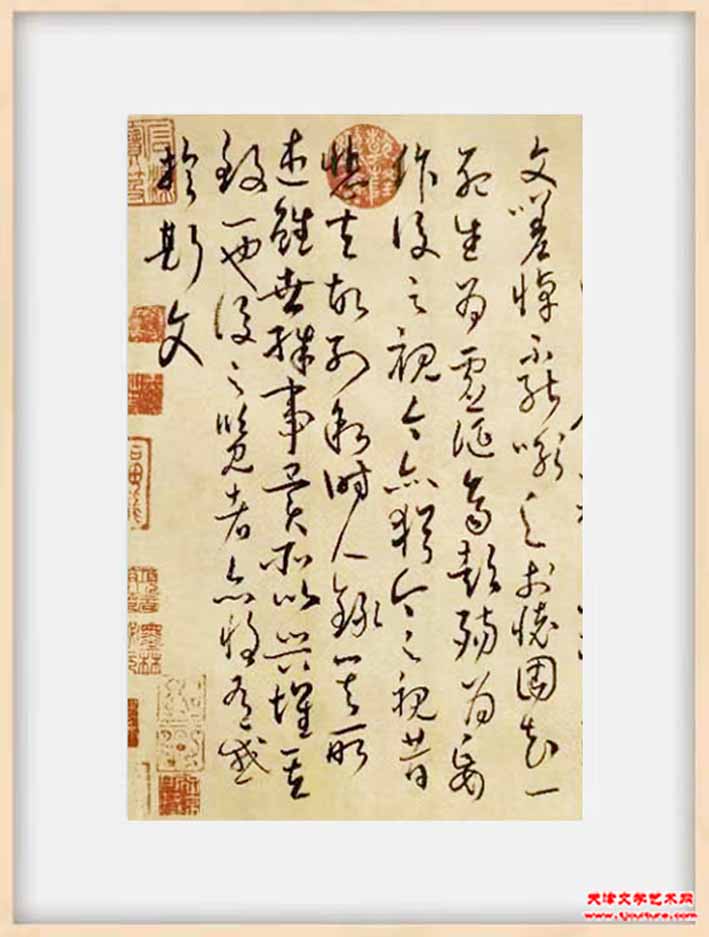 文嗟悼不能喻之於懷固知一
死生為虛誕齊彭殤為妄
作後之視今亦猶今之視昔
悲夫故列敘時人錄其所
述雖世殊事異所以興懷其
致一也後之覽者亦將有感
於斯文
天津文学艺术网
www.tjculture.com